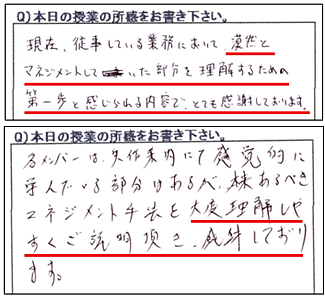 Q)本日の授業の所感をお書き下さい。
現在、従事している業務において、漠然と
マネジメントしていた部分を理解するための
第一歩と感じられる内容で、とても感謝しております。
Q)本日の授業の所感をお書き下さい。
各メンバーは、失作案内にて感覚的に
学んでいる部分はあるが、様あるべき
マネジメント手法を大変理解しや
すくご説明頂き、感謝しており
ます。